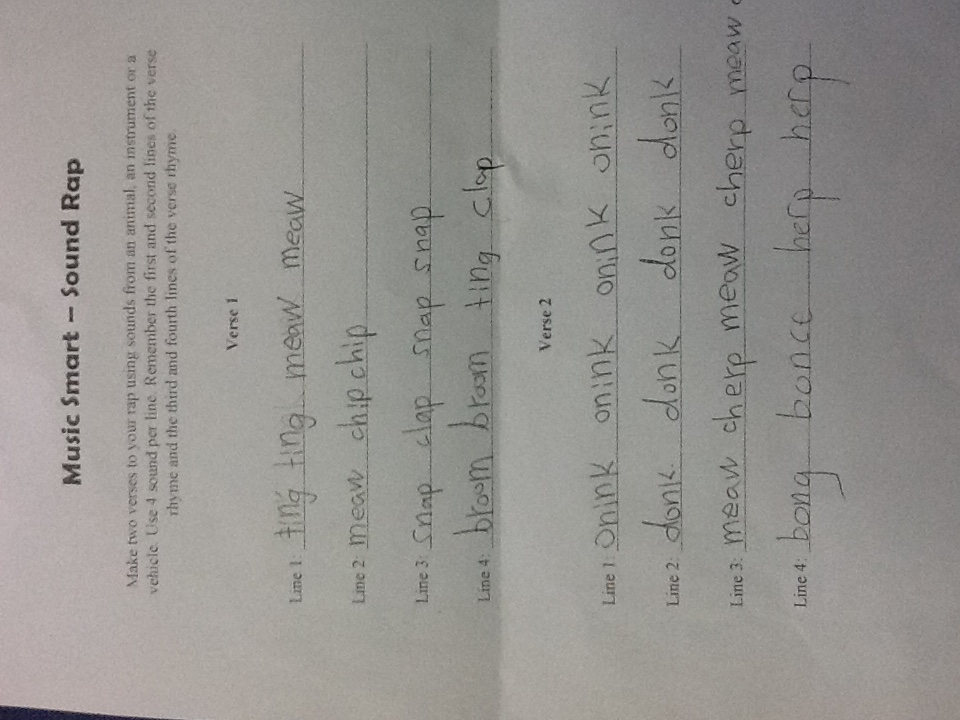 Music Smart – Sound Rap
Make two verses to your rap using sounds from an animal, an instrument or a
vehicle. Use 4 sound per line. Remember the first and second lines of the verse
rhyme and the third and fourth lines of the verse rhyme.
Verse 1
Line 1: ting ting meaw meaw
Line 2: meaw chip chip
Line 3: snap clap snap snap
Line 4: broom broom ting clap
Verse 2
Line 1: onink onink onink onink
Line 2: donk donk donk donk
Line 3: meaw cherp meaw cherp meaw
Line 4: bong bonce herp herp